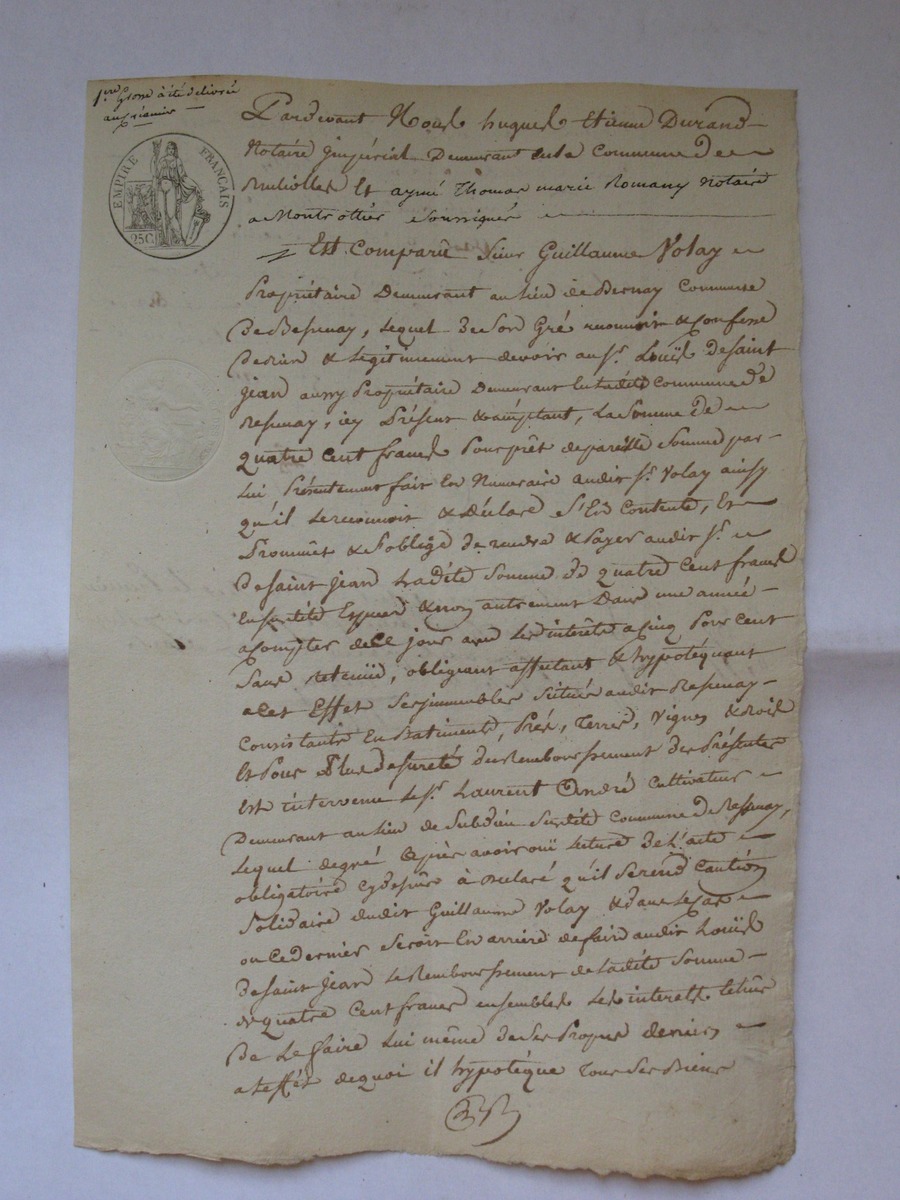 1ere Grosse à été délivrée
au créancier
EMPIRE FRANÇAIS
25C.
Pardevant Nous hugues Etienne Durand
Notaire Impérial Demeurant en la Commune de
Brullioles Et aymé Thomas marie Romany Notaire
a Montrottier Soussignés
Est Comparu Sieur Guillaume Volay
Propriétaire Demeurant au Lieu de Commune
De Bessenay, Lequel De Son Gré reconnoit & Confesse
Devoir & Légitimement devoir au Sr. Louis De Saint
Jean aussy Propriétaire Demeurant En ladite Commune De
Bessenay, icy Présent & acceptant, La Somme De
quatre Cent francs Pour prêt de pareille Somme par
Lui Présentement fait En Numeraire audit Sr. Volay ainsy
qu'il Le reconnoit & déclare S'En Contente, Et
Promet & S'oblige De rendre & Payer audit Sr.
De Saint Jean Ladite Somme De quatre Cent francs
En Espèces & non autrement Dans une année
a Compter de Ce jour avec Les intérêts a Cinq Pour Cent
Sans retenue, obligeant affectant & hypotéquant
a Cet Effet Ses immeubles Situés audit Bessenay
Consistants En Batiments, Prés, Terres, Vignes & Bois
Et Pour Plus de Sureté du Remboursement des Présentes
Est intervenu Le Sr. Laurent André Cultivateur
Demeurant au Lieu de Subdite Commune De Bessenay,
Lequel de gré après avoir ouï Lecture De L'acte
obligatoire Cy dessus à Déclaré qu'il Se rend Caution
Solidaire dudit Guillaume Volay & dans Le Cas
ou Ce dernier Seroit En arriere de faire audit Louis
De Saint Jean Le Remboursement de Ladite Somme
de quatre Cent francs ensembles Les interets
De Le faire Lui même de Ses Propres deniers
a L'effet de quoi il hypotéque Tous Ses Biens